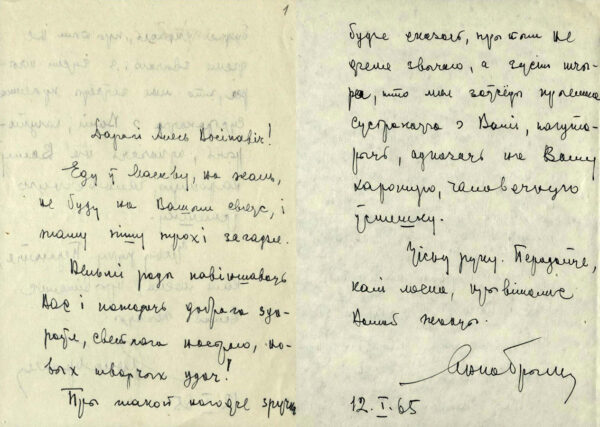 1
Дарагі Алесь Восіпавіч!
Еду ў Маскву, на жаль,
не буду на Вашым свяце, і
таму пішу трохі загадзя.
Вельмі рады павіншаваць
Вас і пажадаць добрага зда-
роўя, светлага настрою, но-
вых творчых удач!
Пры такой нагодзе зручна
будзе сказаць, прытым не
дзеля звычаю, а зусім шчы-
ра, што мне заўсёды прыемна
сустракацца з Вамі, пагута-
рыць, адказаць на Вашу
харошую, чалавечную
ўсмешку.
Цісну руку. Перадайце,
калі ласка, прывітанне
Вашай жонцы.
Янка Брыль
12.I.65